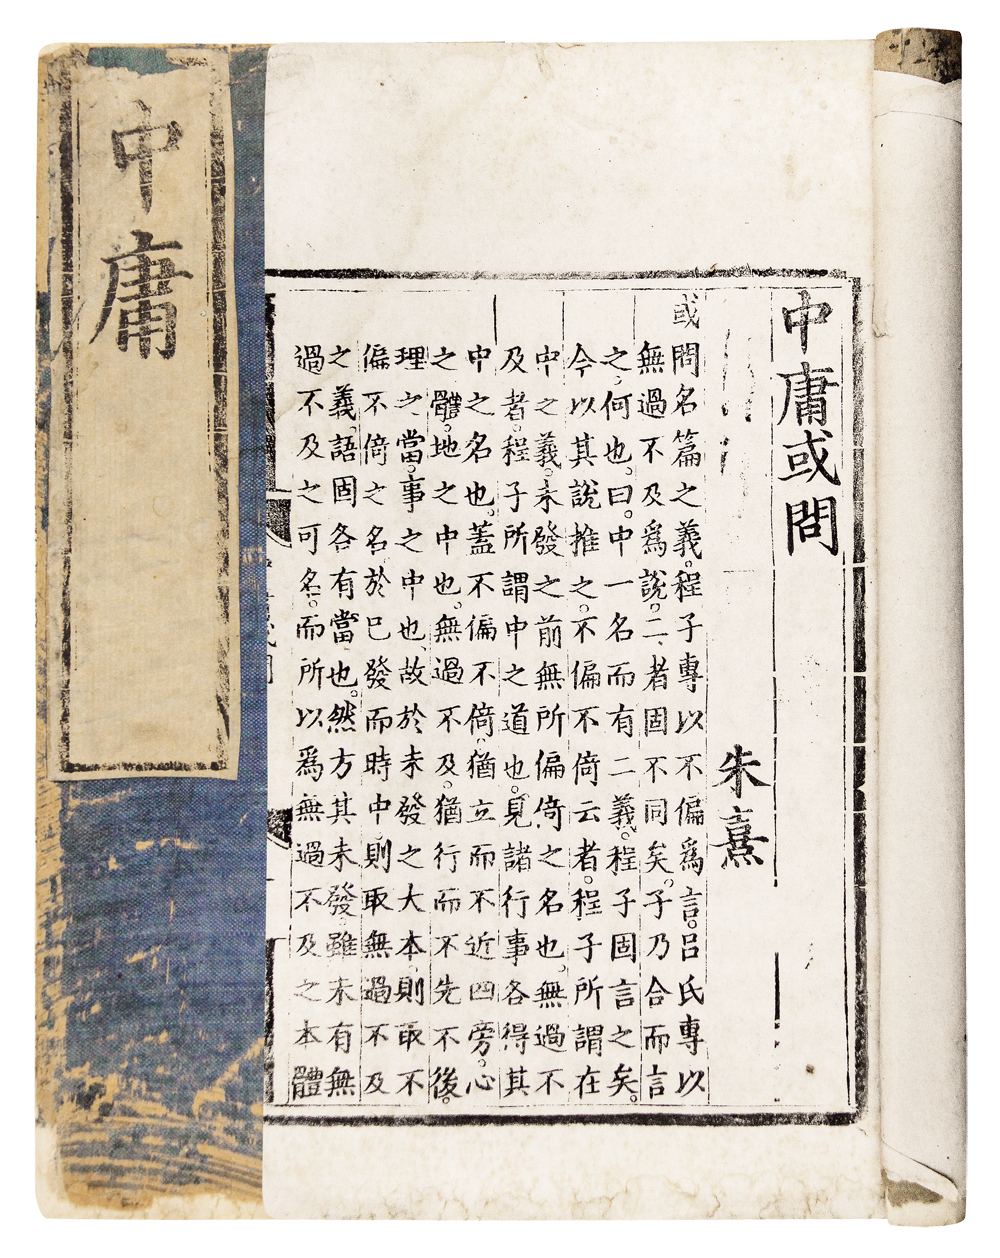 中庸或問
朱熹
或問名篇之義。程子專以不偏爲言。呂氏專以
無過不及爲說。二者固不同矣。子乃合而言
之、何也。曰。中一名而有二義。程子固言之矣。
今以其說推之。不偏不倚云者。程子所謂在
中之義。未發之前無所偏倚之名也。無過不
及者。程子所謂中之道也。見諸行事各得其
中之名也。蓋不偏不倚。猶立而不近四旁。心
之體。地之中也。無過不及。猶行而不先不後。
理之當。事之中也、故於未發之大本。則取不
偏不倚之名。於已發而時中。則取無過不及
之義。語固各有當也。然方其未發。雖未有無
過不及之可名。而所以爲無過不及之本體
中庸